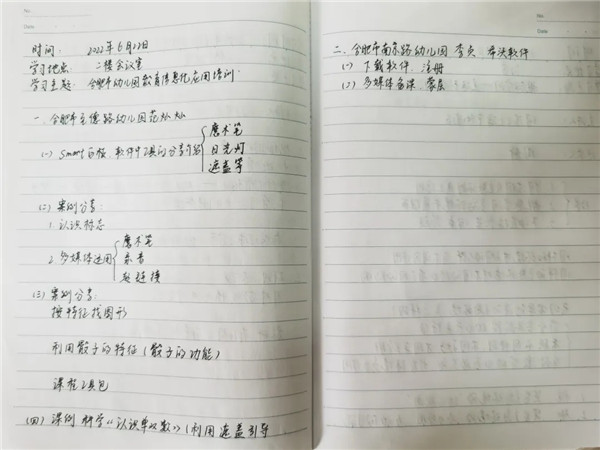 No.
Date
时间： 2022年6月22日
学习地点： 二楼会议室
学习主题：合肥市幼儿园教育信息化应用培训
一、合肥市立德路幼儿园范灿灿
(一) Smart白板，软件中工具的分享介绍 魔术笔
日光灯
遮盖等
(二) 案例分享：
1. 认识标志
2. 多媒体运用 魔术笔
录音
超链接
(三) 案例分享：
按特征找图形
利用骰子的特征(骰子的功能)
课程工具包
(四) 课例 科学《认识单双数》(利用遮盖引导
No.
Date
二、合肥市南京路幼儿园 李贞 希沃软件
(1) 下载软件、注册
(2) 多媒体备课、蒙层